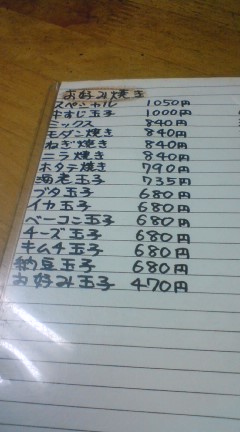 お好み焼き
スペシャル 1050円
牛すじ玉子 1000円
ミックス 840円
モダン焼き 840円
ねぎ焼き 840円
ニラ焼き 840円
ホタテ焼き 790円
海老玉子 735円
ブタ玉子 680円
イカ玉子 680円
ベーコン玉子 680円
チーズ玉子 680円
キムチ玉子 680円
納豆玉子 680円
お好み玉子 470円